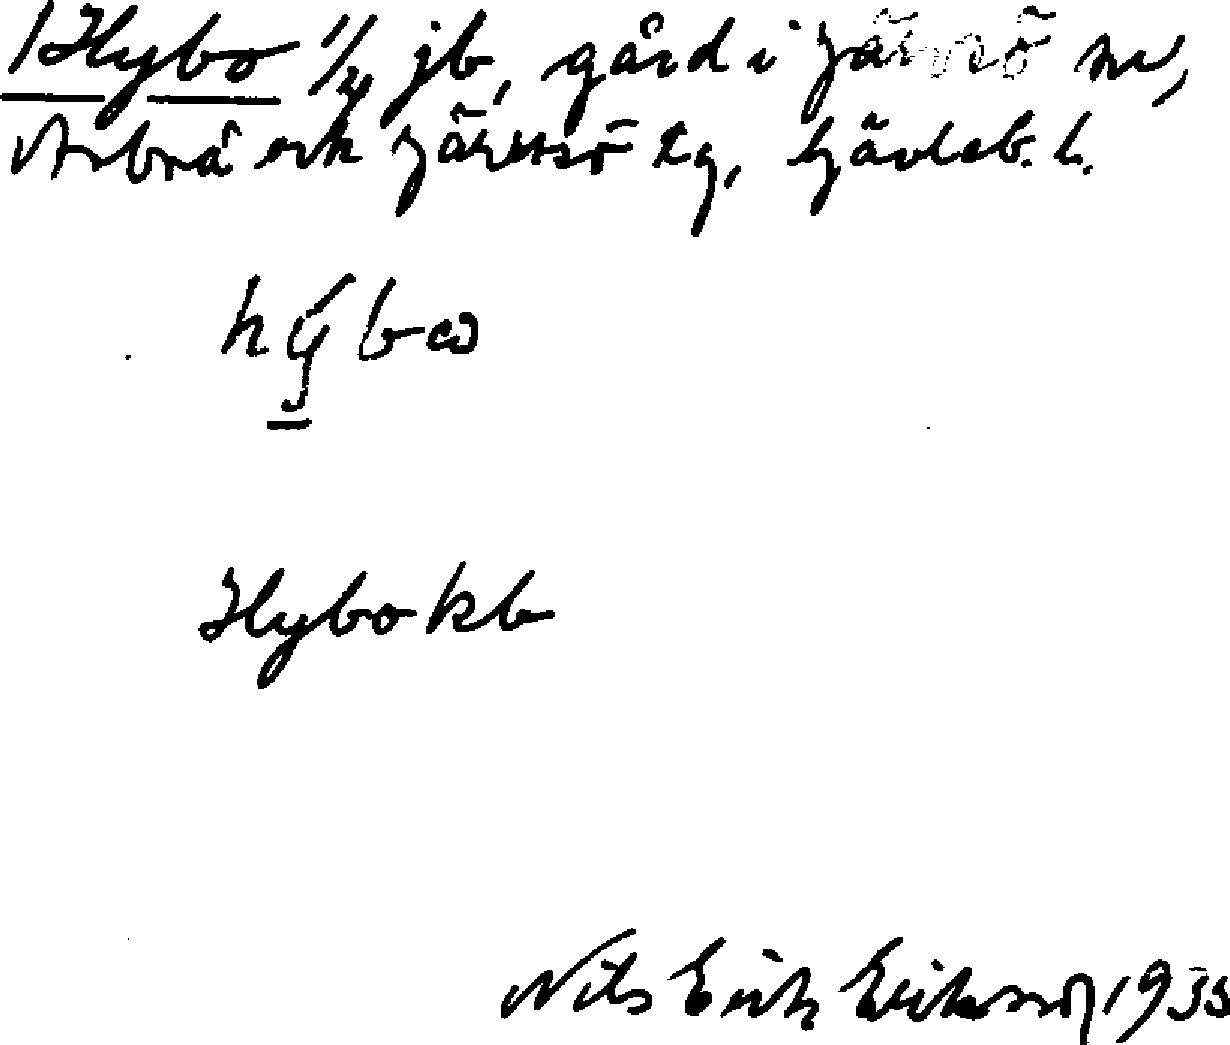 Hybo 1/4 jb, gård i Järvsö sn,
Arbrå och Järvsö tg, Gävleb. l.
hýbω
Hybo kb
Nils Erik Eriksson 1935